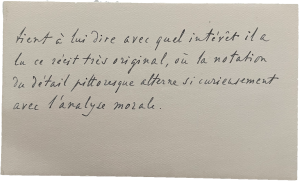 tient à lui dire avec quel intérêt il a
lu ce récit très original, où la notation
du détail pittoresque alterne si curieusement
avec l'analyse morale.